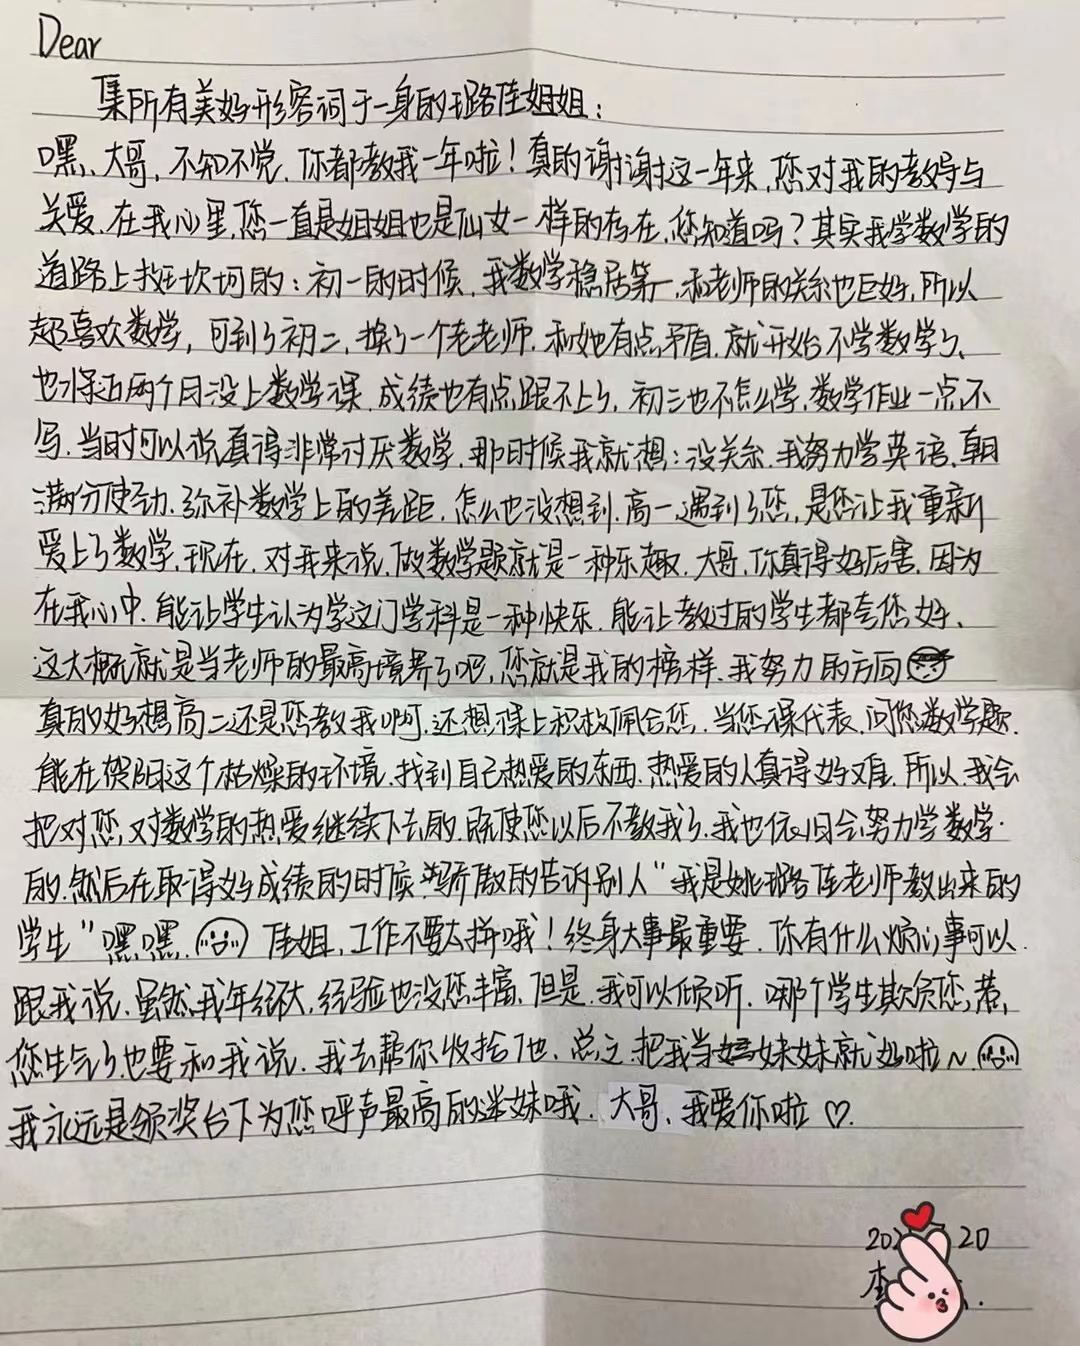 Dear
集所有美好形容词于一身的璐佳姐姐：
嘿、大哥，不知不觉，你都教我一年啦！真的谢谢这一年来，您对我的教导与
关爱，在我心里，您一直是姐姐也是仙女一样的存在，您知道吗？其实我学数学的
道路上挺坎坷的：初一的时候，我数学稳居第一，和老师的关系也巨好，所以
超喜欢数学，可到了初二，换了一个老老师，和她有点矛盾，就开始不学数学了、
也将近两个月没上数学课，成绩也有点跟不上了，初三也不怎么学，数学作业一点不
写，当时可以说真得非常讨厌数学，那时候我就想：没关系，我努力学英语，朝
满分使劲，弥补数学上的差距，怎么也没想到，高一遇到了您，是您让我重新
爱上了数学，现在，对我来说，做数学题就是一种乐趣，大哥，你真得好厉害，因为
在我心中，能让学生认为学这门学科是一种快乐，能让教过的学生都夸您好、
这大概就是当老师的最高境界了吧，您就是我的榜样，我努力的方向
真的好想高二还是您教我啊，还想课上积极佩合您，当您课代表，问您数学题，
能在贺阳这个枯燥的环境，找到自己热爱的东西，热爱的人真得好难，所以，我会
把对您，对数学的热爱继续下去的，既使您以后不教我了，我也依旧会努力学数学
的，然后在取得好成绩的时候，骄傲的告诉别人"我是姚璐佳老师教出来的
学生"嘿，嘿，佳姐，工作不要太拼哦！终身大事最重要，你有什么烦心事可以
跟我说，虽然，我年纪不大，经验也没您丰富，但是，我可以倾听，哪个学生欺负您，惹，
您生气了也要和我说，我去帮你收拾他，总之，把我当妹妹就好啦~
我永远是颁奖台下为您呼声最高的迷妹哦，大哥、我爱你啦♡.
202 20
李